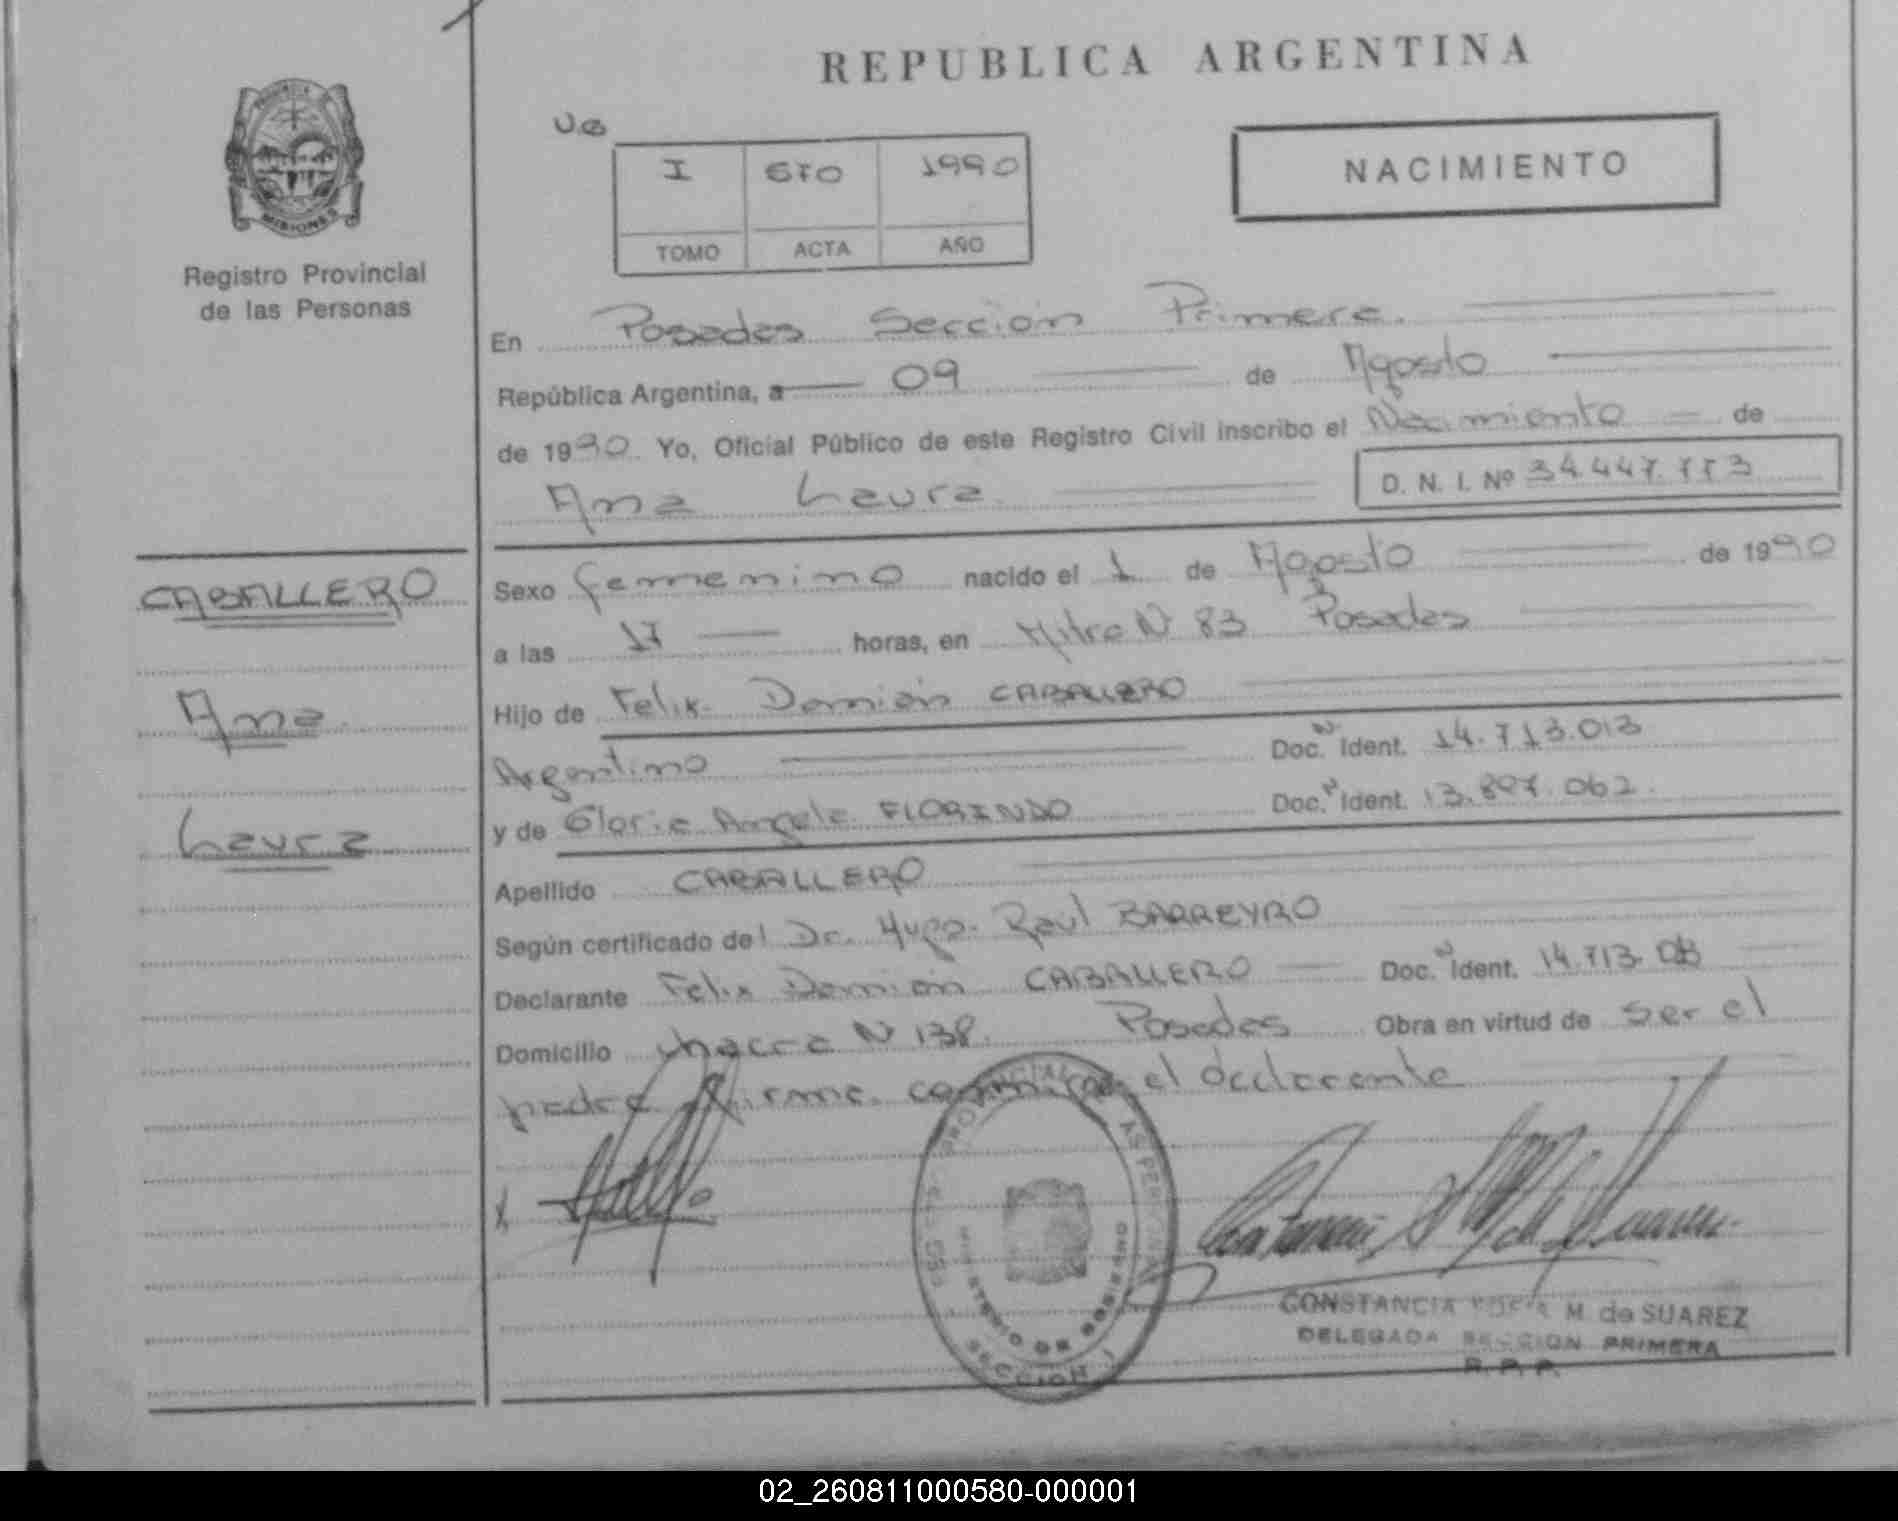 REPUBLICA ARGENTINA
PROVINCIA
MISIONES
Registro Provincial
de las Personas
U.G
I 670 1990
TOMO ACTA AÑO
NACIMIENTO
En Posadas Sección Primera.
República Argentina, a 09 de Agosto
de 1990. Yo, Oficial Público de este Registro Civil inscribo el Nacimiento de
Ana Laura D. N. I. Nº 34.447.773
CABALLERO
Ana
Laura
Sexo femenino nacido el 1 de Agosto de 1990
a las 17 horas, en Mitre N 83 Posadas
Hijo de Felix Damián CABALLERO
Argentino Doc. N Ident. 14.713.013
y de Gloria Angela FLORINDO Doc. N Ident. 13.897.062.
Apellido CABALLERO
Según certificado del Dr. Hugo Raul BARREYRO
Declarante Felix Damián CABALLERO Doc. N Ident. 14.713.013
Domicilio chacra N 138. Posadas Obra en virtud de ser el
padre firma conmigo el declarante
X
MINISTERIO DE GOBIERNO
SECCION 1
CONSTANCIA M. de SUAREZ
DELEGADA SECCION PRIMERA
R. P. P.
02_260811000580-000001